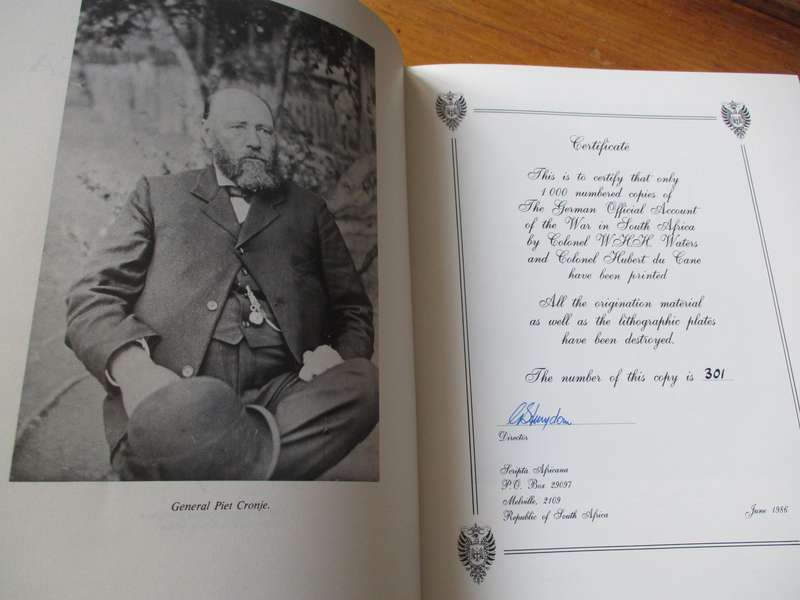 General Piet Cronje.
Certificate
This is to certify that only
1 000 numbered copies of
The German Official Account
of the War in South Africa
by Colonel W.H.H. Waters
and Colonel Hubert du Cane
have been printed
All the origination material
as well as the lithographic plates
have been destroyed.
The number of this copy is 301
Director
Scripta Africana
P.O. Box 29097
Melville, 2109
Republic of South Africa
June 1986